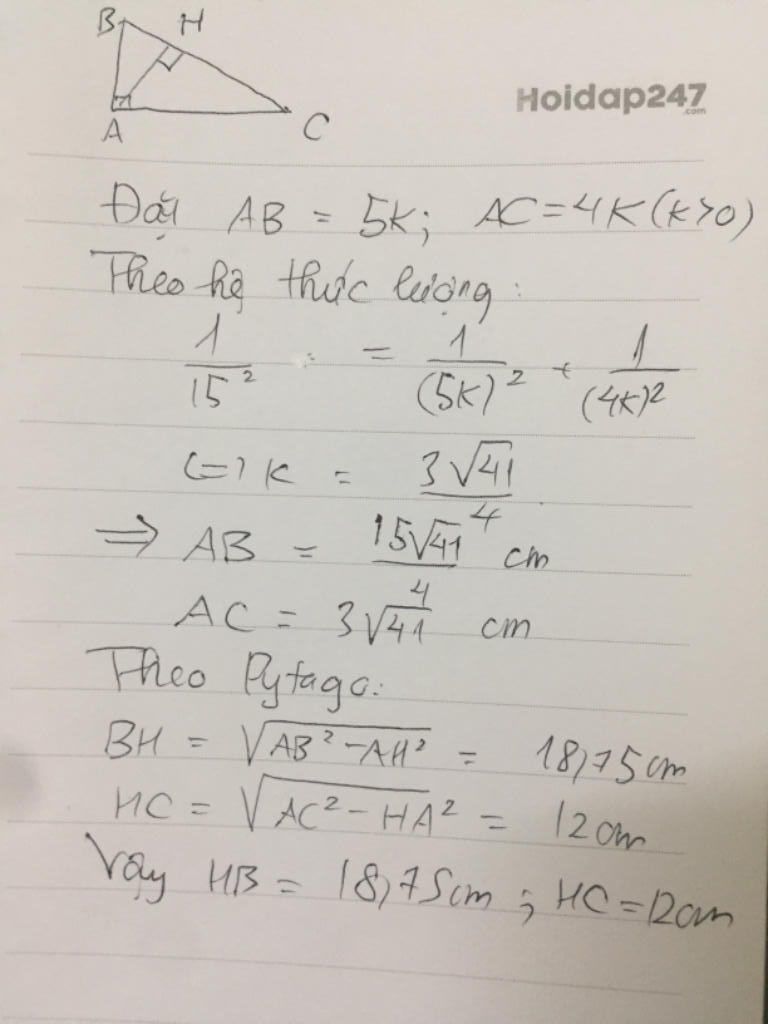 B H
A C
Hoidap247
.com
Đặt AB = 5k; AC = 4k (k>0)
Theo hệ thức lượng:
1/15² = 1/(5k)² + 1/(4k)²
(=) k = 3√41/4
=> AB = 15√41/4 cm
AC = 3√41 cm
Theo Pytago:
BH = √(AB² - AH²) = 18,75cm
HC = √(AC² - HA²) = 12cm
Vậy HB = 18,75cm ; HC = 12cm